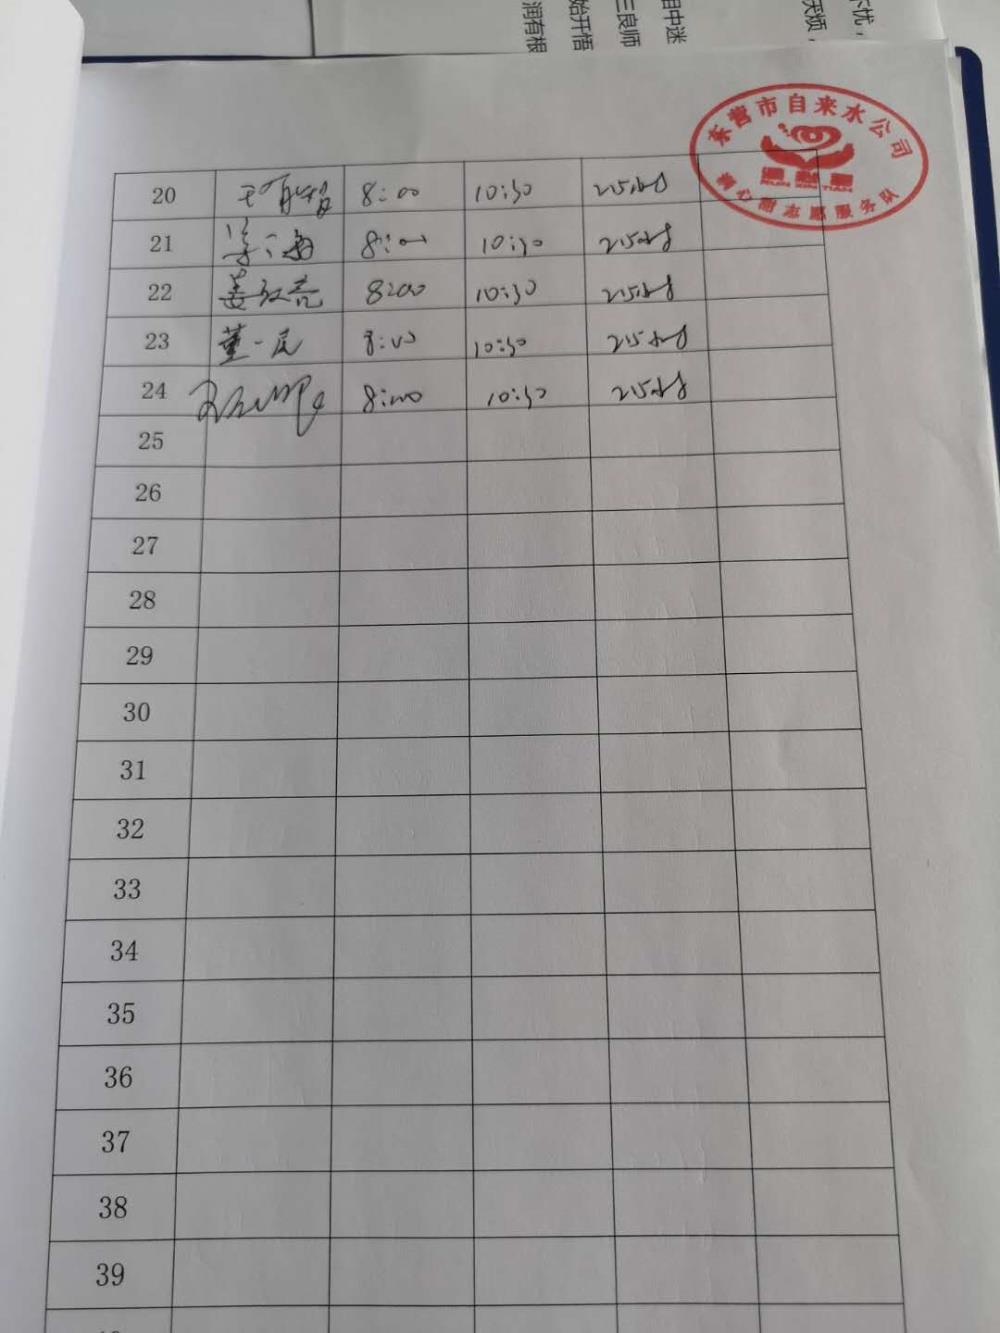 不忧，
天烦，
相中迷
三良师
始开悟
润有根
东营市自来水公司
润心甜
RUN XIN TIAN
润心甜志愿服务队
20 8:00 10:30 2.5小时
21 8:00 10:30 2.5小时
22 姜红亮 8:00 10:30 2.5小时
23 董一辰 8:00 10:30 2.5小时
24 8:00 10:30 2.5小时
25
26
27
28
29
30
31
32
33
34
35
36
37
38
39